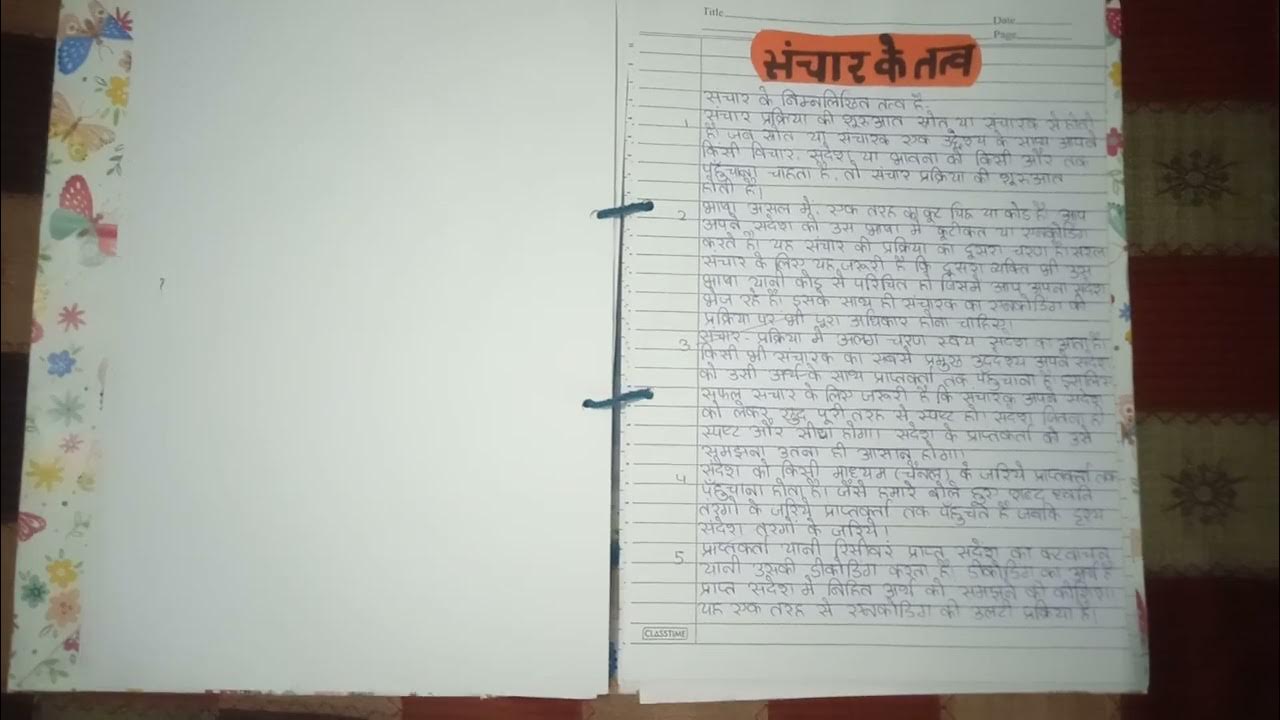 Title
Date
Page
संचार के तत्व
संचार के निम्नलिखित तत्व है-
1 संचार प्रक्रिया की शुरुआत स्रोत या संचारक से होती
है जब स्रोत या संचारक एक उद्देश्य के साथ अपने
किसी विचार, संदेश या भावना को किसी और तक
पहुँचाना चाहता है, तो संचार प्रक्रिया की शुरूआत
होती है।
2 भाषा असल में, एक तरह का कूट चिह्न या कोड है। आप
अपने संदेश को उस भाषा में कूटीकृत या एन्कोडिंग
करते हैं। यह संचार की प्रक्रिया का दूसरा चरण है। सफल
संचार के लिए यह जरूरी है कि दूसरा व्यक्ति भी उस
भाषा यानी कोड से परिचित हो जिसमें आप अपना संदेश
भेज रहे हैं। इसके साथ ही संचारक का एन्कोडिंग की
प्रक्रिया पर भी पूरा अधिकार होना चाहिए।
3 संचार-प्रक्रिया में अलग चरण स्वयं संदेश का आता है।
किसी भी संचारक का सबसे प्रमुख उद्देश्य अपने संदेश
को उसी अर्थ के साथ प्राप्तकर्ता तक पहुँचाना है। इसलिए
सफल संचार के लिए जरूरी है कि संचारक अपने संदेश
को लेकर खुद पूरी तरह से स्पष्ट हो। संदेश जितना ही
स्पष्ट और सीधा होगा। संदेश के प्राप्तकर्ता को उसे
समझना उतना ही आसान होगा।
4 संदेश को किसी माध्यम (चैनल) के जरिये प्राप्तकर्ता तक
पहुँचाना होता है। जैसे हमारे बोले हुए शब्द ध्वनि
तरंगों के जरिये प्राप्तकर्ता तक पहुँचते हैं जबकि दृश्य
संदेश तरंगों के जरिये।
5 प्राप्तकर्ता यानी रिसीवर प्राप्त संदेश का कूटवाचन
यानी उसकी डीकोडिंग करता है। डीकोडिंग का अर्थ है
प्राप्त संदेश में निहित अर्थ को समझने की कोशिश।
यह एक तरह से एन्कोडिंग की उलटी प्रक्रिया है।
CLASSTIME